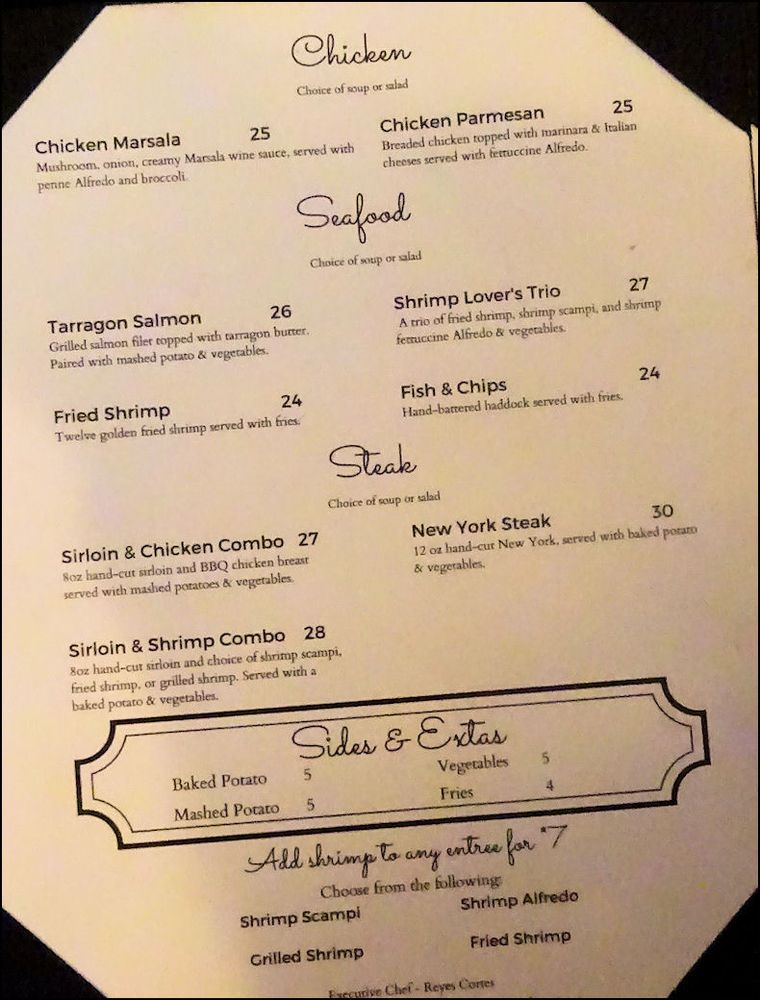 Chicken
Choice of soup or salad
Chicken Marsala 25
Mushroom, onion, creamy Marsala wine sauce, served with
penne Alfredo and broccoli.
Chicken Parmesan 25
Breaded chicken topped with marinara & Italian
cheeses served with fettuccine Alfredo.
Seafood
Choice of soup or salad
Tarragon Salmon 26
Grilled salmon filet topped with tarragon butter.
Paired with mashed potato & vegetables.
Shrimp Lover's Trio 27
A trio of fried shrimp, shrimp scampi, and shrimp
fettuccine Alfredo & vegetables.
Fried Shrimp 24
Twelve golden fried shrimp served with fries.
Fish & Chips 24
Hand-battered haddock served with fries.
Steak
Choice of soup or salad
Sirloin & Chicken Combo 27
8oz hand-cut sirloin and BBQ chicken breast
served with mashed potatoes & vegetables.
New York Steak 30
12 oz hand-cut New York, served with baked potato
& vegetables.
Sirloin & Shrimp Combo 28
8oz hand-cut sirloin and choice of shrimp scampi,
fried shrimp, or grilled shrimp. Served with a
baked potato & vegetables.
Sides & Extas
Baked Potato 5
Vegetables 5
Mashed Potato 5
Fries 4
Add shrimp to any entree for $7
Choose from the following:
Shrimp Scampi
Shrimp Alfredo
Grilled Shrimp
Fried Shrimp
Executive Chef - Reyes Cortes